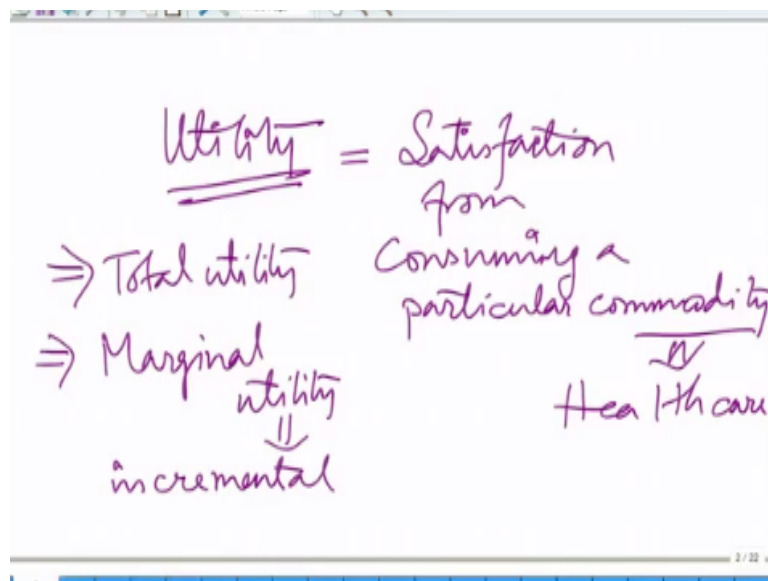 Utility = Satisfaction
from
Consuming a
particular commodity
⇓
Healthcare
⇒ Total utility
⇒ Marginal
utility
⇓
incremental
2/22